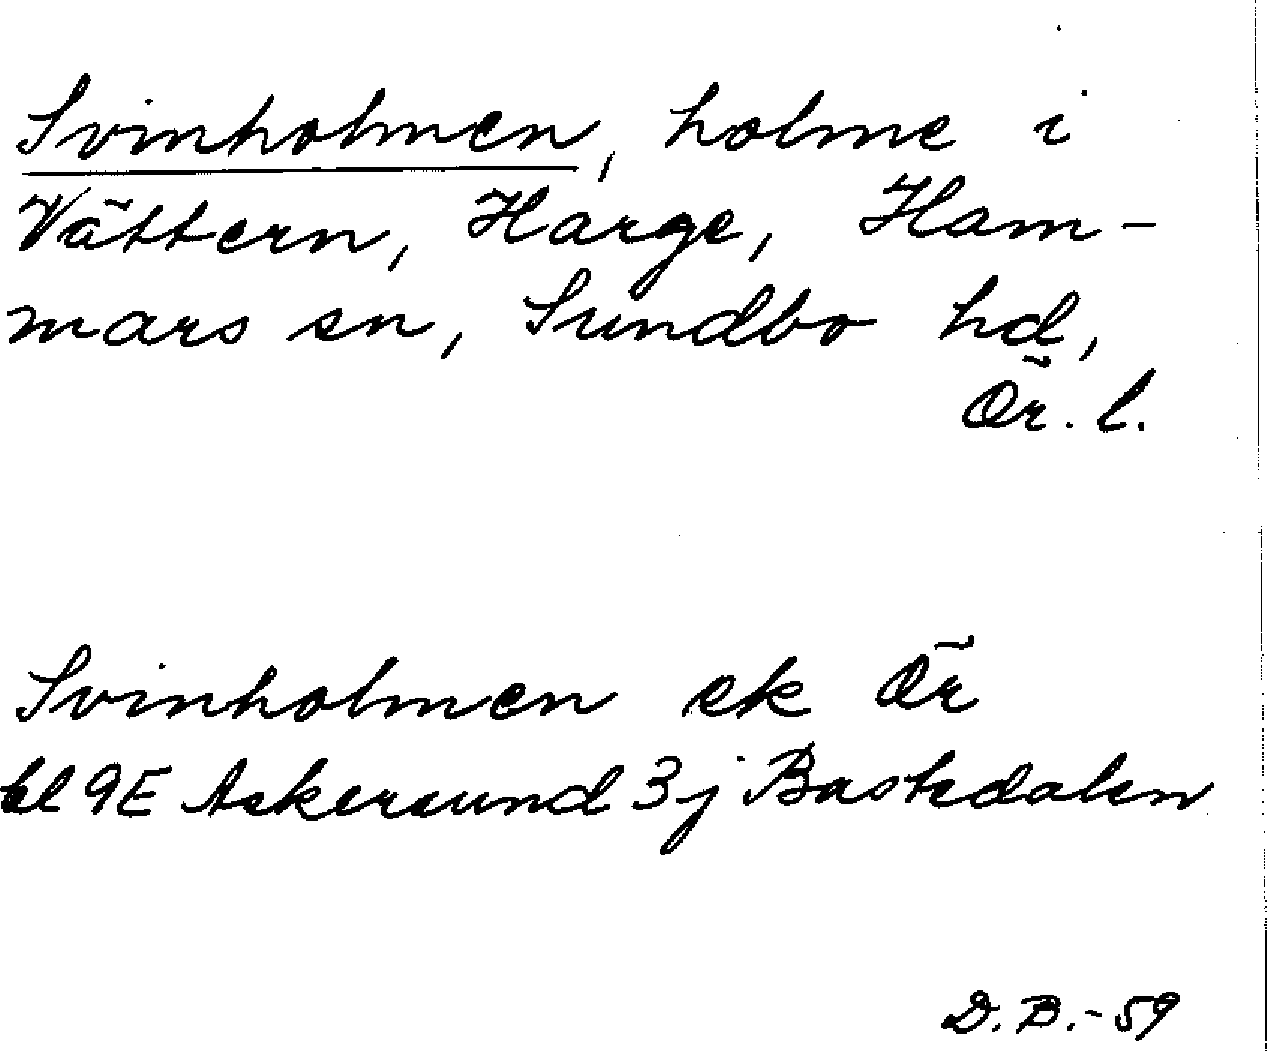 Svinholmen, holme i
Vättern, Harge, Ham-
mars sn, Sundbo hd,
Ör. l.
Svinholmen ek Ör
bl 9E Askersund 3j Bastedalen
D.B.-59